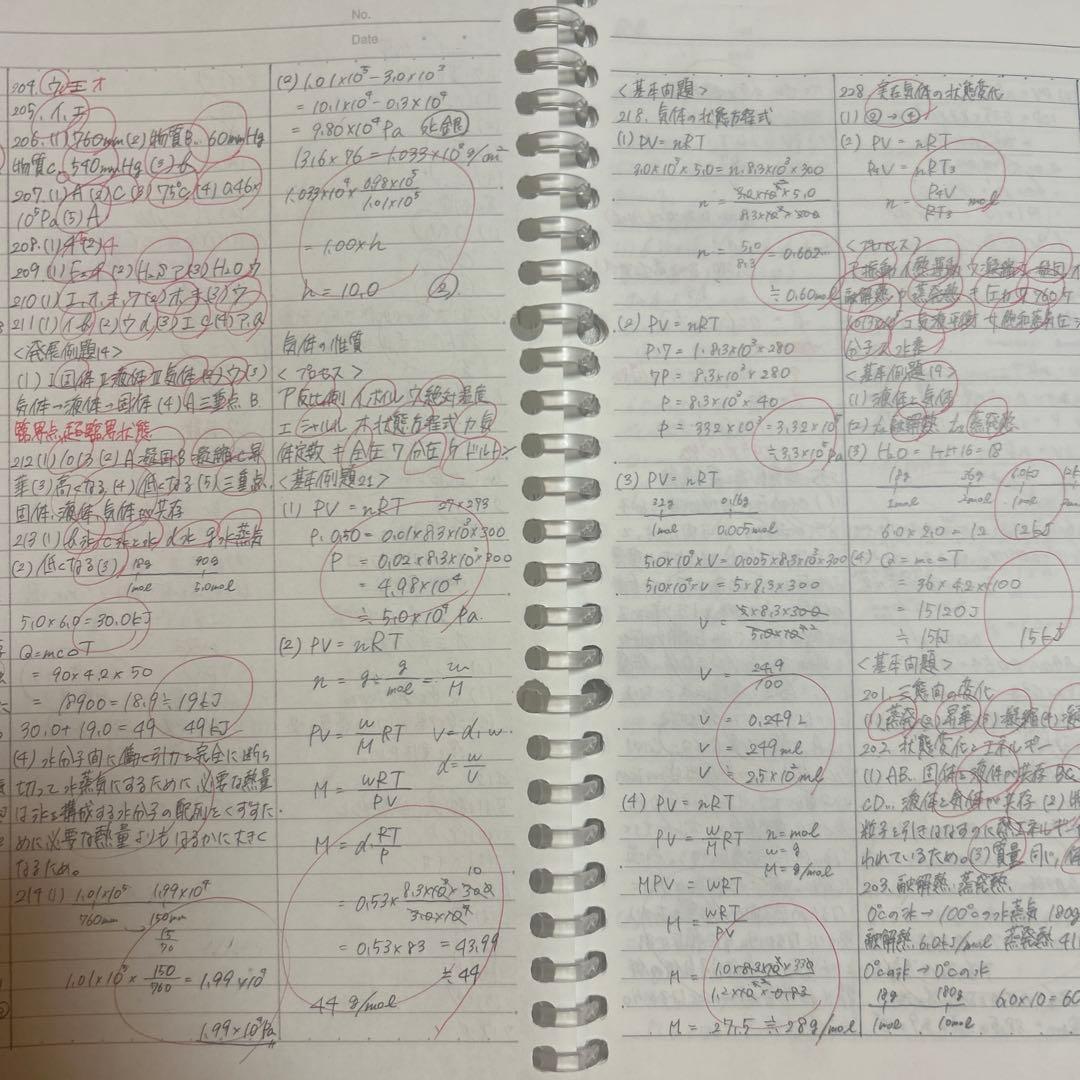 No.
Date
204. ウ エ オ
205. イ, エ
206. (1) 760mm (2) 物質B... 60mmHg
物質C 540mmHg (3) b
207. (1) A (2) C (3) 75℃ (4) 0.46×
10⁵Pa (5) A
208. (1) (2) 4
209 (1) (2) H₂S ア (3) H₂O ウ
210 (1) エ, オ, キ, ウ (2) オ, キ (3) ウ
211 (1) イ b (2) ウ d (3) エ c (4) ア, a
<発展例題14>
(1) I 固体 II 液体 III 気体 (2) ウ (3)
気体→液体→固体 (4) A 三重点 B
臨界点, 超臨界状態
212 (1) 1013 (2) A 凝固 B 凝縮 C 昇
華 (3) 高くなる (4) 低くなる (5) 三重点,
固体, 液体, 気体が共存
213 (1) b 氷 c 氷と水 d 水 g 水蒸気
(2) 低くなる (3) 18g 90g
1mol 5.0mol
5.0×6.0=30.0kJ
Q=mc△T
= 90×4.2×50
= 18900=18.9≒19kJ
30.0+19.0=49 49kJ
(4) 水分子間に働く引力を完全に断ち
切って水蒸気にするために必要な熱量
は氷を構成する水分子の配列をくずすた
めに必要な熱量よりもはるかに大きく
なるため。
214 (1) 1.01×10⁵ 1.99×10⁴
760mm 150mm
15/76
1.01×10⁵×150/760=1.99×10⁴
1.99×10⁴Pa
(2) 1.01×10⁵-3.0×10³
= 10.1×10⁴-0.3×10⁴
= 9.80×10⁴Pa
13.6×76=1.033×10³g/cm²
= 1.00×h
h=10.0
気体の性質
<プロセス>
ア反比例 イボイル ウ絶対温度
エシャルル オ状態方程式 カ気
体定数 キ全圧 ク分圧 ケドルトン
<基本例題21>
(1) PV=nRT 27+273
P・0.50=0.01×8.3×10³×300
P = 0.02×8.3×10³×300
= 4.98×10⁴
≒5.0×10⁴ Pa.
(2) PV=nRT
n=g÷g/mol=w/M
PV=w/M RT V=d・w.
d=w/V
M=wRT/PV
M=d・RT/P
10
=0.53×8.3×10³×300/3.0×10⁴
=0.53×83=43.99
≒44
44 g/mol
<基本問題>
218. 気体の状態方程式
(1) PV=nRT
3.0×10⁵×5.0=n・8.3×10³×300
n=3.0×10⁵×5.0/8.3×10³×300
n=5.0/8.3=0.602...
≒0.60mol
(2) PV=nRT
P・7=1・8.3×10³×280
7P=8.3×10³×280
P=8.3×10³×40
P=332×10³=3.32×10⁵
≒3.3×10⁵Pa
(3) PV=nRT
32g 0.16g
1mol 0.005mol
5.0×10⁴×V=0.005×8.3×10³×300
5.0×10⁴×V=5×8.3×300
V=5×8.3×300/5.0×10⁴
V=24.9/100
V=0.249L
V=249ml
V≒2.5×10²ml
(4) PV=nRT
PV=w/M RT n=mol
w=g
M=g/mol
MPV=wRT
M=wRT/PV
M=1.0×8.3×10³×330/1.2×10⁵×0.83
M=27.5≒28g/mol
228. 実在気体の状態変化
(1) ②→④
(2) PV=nRT
P₄V=nRT₃
n=P₄V/RT₃ mol
<プロセス>
ア振動 イ熱運動 ウ凝縮 エ凝固 オ
融解熱 カ蒸発熱 キ圧力 ク760 ケ
1.013×10⁵ コ気液平衡 サ飽和蒸気圧 シ
分子 ス水素
<基本例題19>
(1) 液体と気体
(2) t₁ 融解熱 t₂ 蒸発熱
(3) H₂O=1+1+16=18
18g 36g 6.0kJ
1mol 2mol 1mol
6.0×2.0=12 12kJ
(4) Q=mc△T
=36×4.2×100
=15120J
≒15kJ 15kJ
<基本問題>
201. 三態間の変化
(1) 蒸発 (2) 昇華 (3) 凝縮 (4)
202. 状態変化とエネルギー
(1) AB... 固体と液体が共存 BC
CD... 液体と気体が共存 (2)
粒子を引きはなすのに熱エネルギー
われているため。(3) 質量 同じ,
203. 融解熱, 蒸発熱,
0℃の氷→100℃の水蒸気 180g
融解熱, 6.0kJ/mol 蒸発熱 41
0℃の氷→0℃の水
18g 180g 6.0×10=60
1mol 10mol